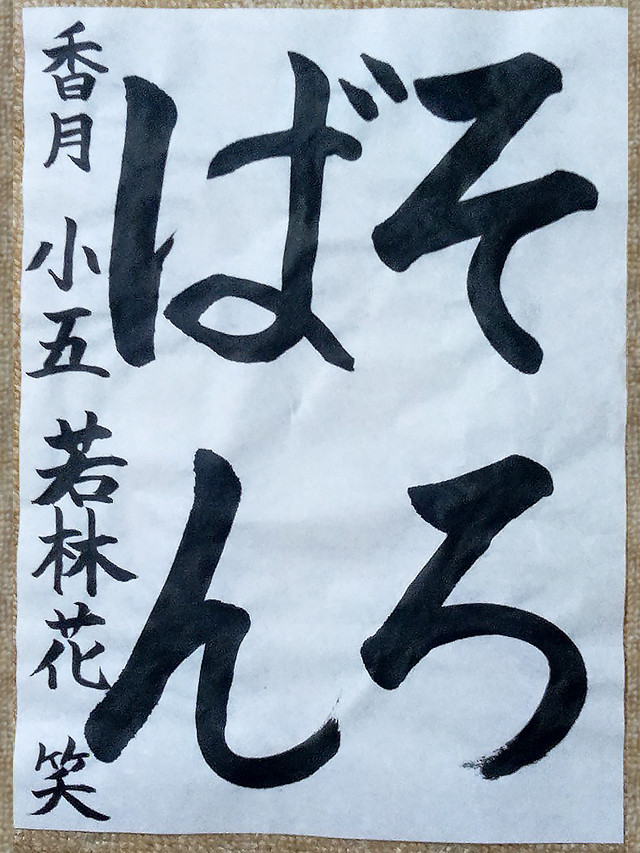 そろ
ばん
香月 小五 若林花 笑